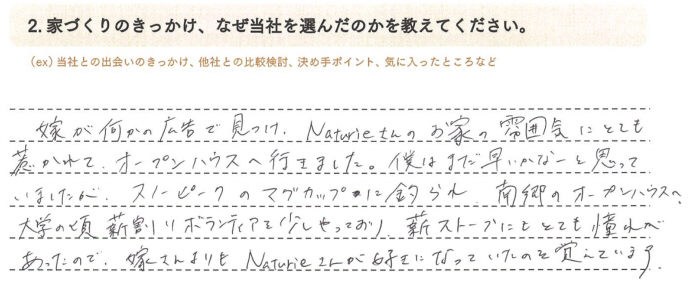 2. 家づくりのきっかけ、なぜ当社を選んだのかを教えてください。
（ex）当社との出会いのきっかけ、他社との比較検討、決め手ポイント、気に入ったところなど
嫁が何かの広告で見つけ、Naturieさんのお家の雰囲気にとても
惹かれて、オープンハウスへ行きました。僕はまだ早いかなーと思って
いましたが、スノーピークのマグカップに釣られ、南郷のオープンハウスへ、
大学の頃薪割りボランティアを少しやっており、薪ストーブにもとても憧れが
あったので、嫁さんよりもNaturieさんが好きになっていたのを覚えています。